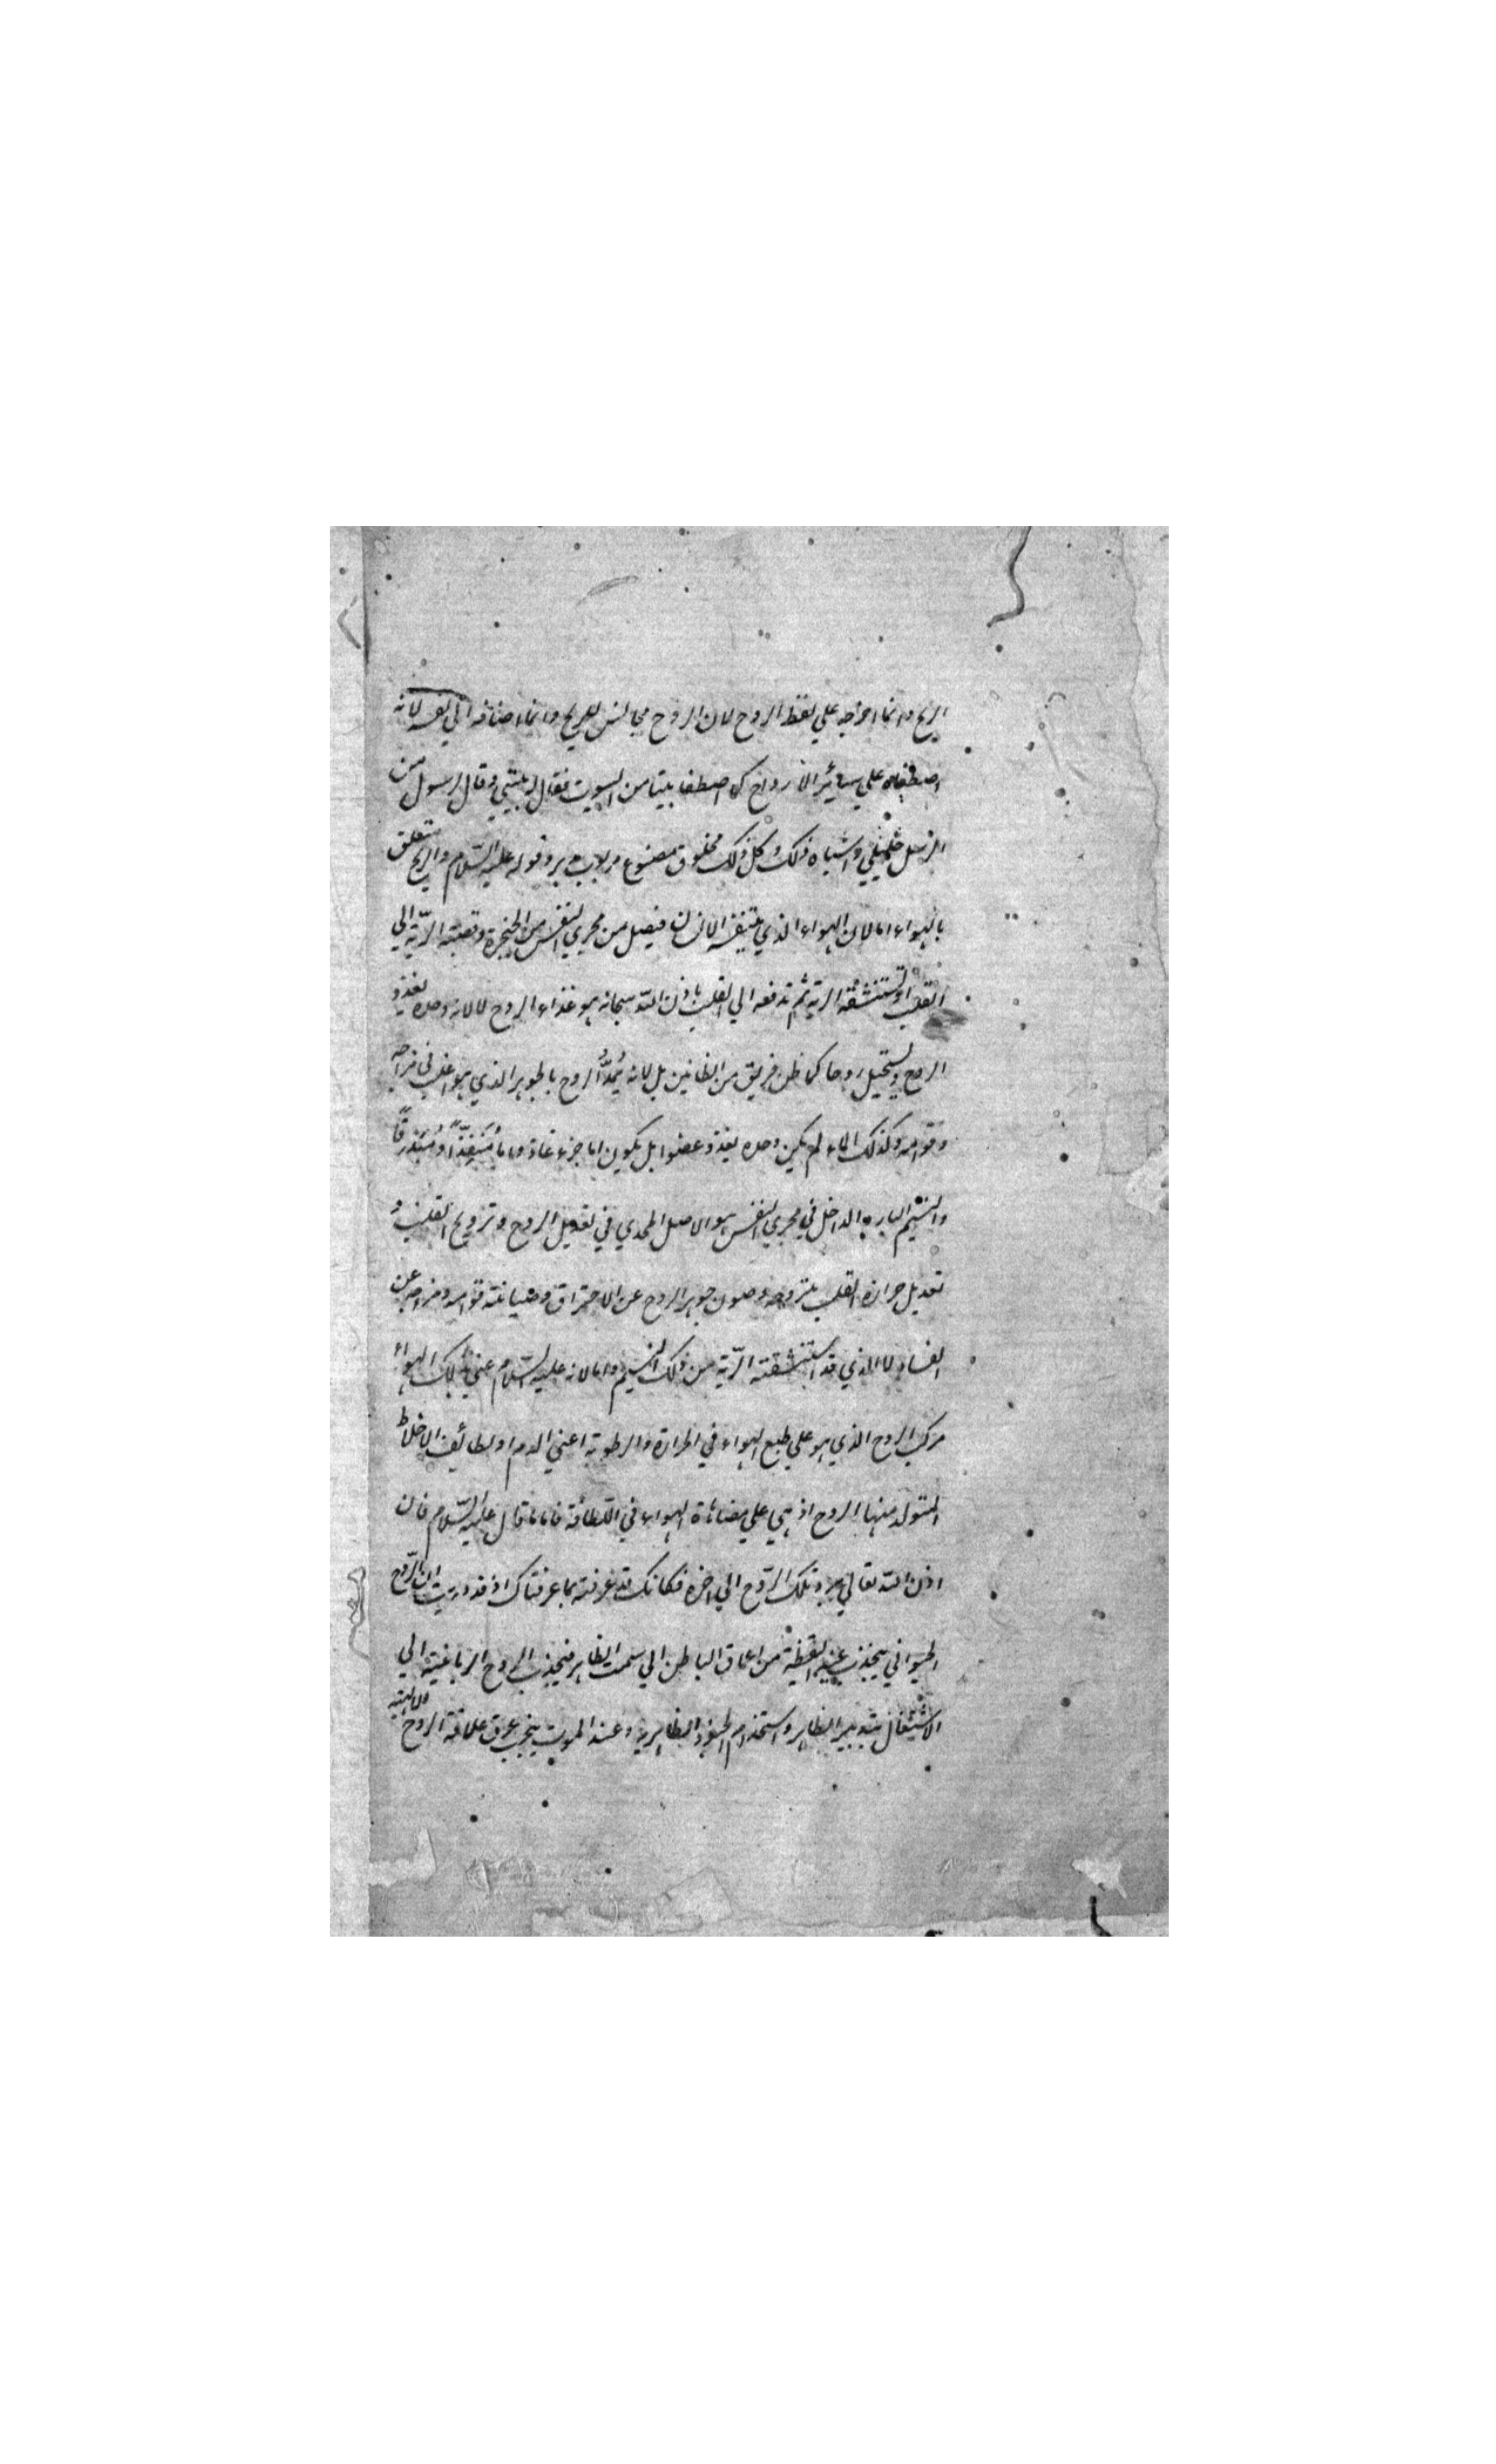 الريح وانما اخرجه علي لفظ الروح لان الروح مجانس للريح وانما اضافه الي نفسه لانه
اصطفاه علي سائر الارواح كما اصطفا بيتا من البيوت فقال له بيتي وقال لرسول من
الرسل خليلي واشباه ذلك وكل ذلك مخلوق مصنوع مربوب مدبر وقوله عليه السلام والريح متعلق
بالهواء اما لان الهواء الذي يتنفسه الانسان فيصل من مجري النفس من الحنجرة وقصبته الرّية الي
القلب او تستنشقه الرية ثم تدفعه الي القلب باذن الله سبحانه هو غذاء الروح لا لانه وحده يغذو
الروح ويستحيل روحا كما ظن فريق من الظانين بل لانه يُمِدُّ الروح بالجوهر الذي هو اغلب في مزاجه
وقوامه وكذلك الماء لم يكن وحده يغذو عضوا بل يكون اما جزء غاذ واما مُنَفِّذًا ومُبَذرقًا
والنسيم البارد الداخل في مجري النفس هو الاصل المجدي في تعديل الروح وترويح القلب و
تعديل حرارة القلب بتروحه وصون جوهر الروح عن الاحتراق وصيانته قوامه ومزاجه عن
الفساد لا الذي قد استنشقته الرّية من ذلك النسيم واما لانه عليه السلام عني بذلك الهواء
مركب الروح الذي هو علي طبع الهواء في الحرارة والرطوبة اعني الدم او لطائف الاخلاط
المتولد منها الروح اذ هي علي مضاهاة الهواء في اللطافة فاما ما قال عليه السلام فان
اذن الله تعالي برد تلك الرّوح الي اخره فكانك قد عرفته بما عرفناك اذ قد دريت ان الرّوح
الحيواني ينجذب عند اليقظة من اعماق الباطن الي سمت الظاهر فينجذب الروح الدماغية الي
الاشتغال بتدبير الظاهر واستخدام الجنود الظاهرية وعند الموت ينجذب عرق علاقة الروح الالهية